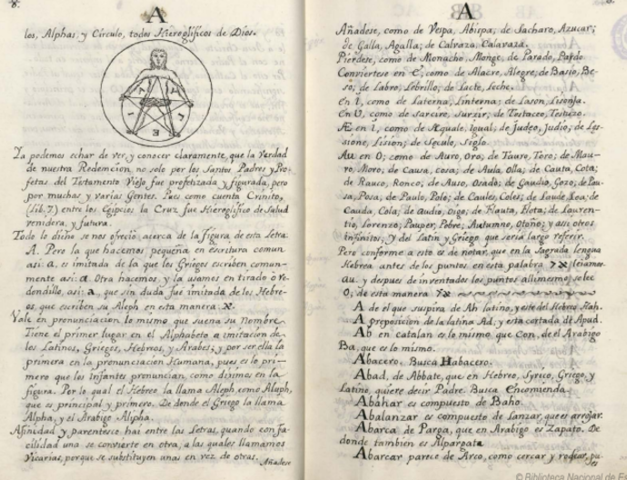 8.
A
los, Alphas, y Círculo, todos Hieroglíficos de Dios.
Ya podemos echar de ver, y conocer claramente, que la Verdad
de nuestra Redencion, no solo por los Santos Padres y Pro-
fetas del Testamento Viejo fue profetizada y figurada, pero
por muchas y varias Gentes. Pues como cuenta Crinito,
(lib. 7) entre los Egipcios la Cruz fue Hieroglifico de Salud
venidera, y futura.
Todo lo dicho se nos ofrecio acerca de la figura de esta Letra
A. Pero la que hacemos pequeña en escritura comun
asi: a, es imitada de la que los Griegos escriben comun-
mente asi: a. Otra hacemos, y la usamos en tirado ò re-
dondillo, asi: a, que sin duda fue imitada de los Hebre-
os, que escriben su Aleph en esta manera א.
Vale en pronunciacion lo mismo que suena su Nombre.
Tiene el primer lugar en el Alphabeto a imitacion de
los Latinos, Griegos, Hebreos, y Arabes; y por ser ella la
primera en la pronunciacion Humana, pues es lo pri-
mero que los Infantes pronuncian, como decimos en la
figura. Por lo qual el Hebreo la llama Aleph como Alaph,
que es principal y primero. De donde el Griego la llama
Alpha, y el Arabigo Alpha.
Afinidad y parentesco hai entre las Letras, quando con fa-
cilidad una se convierte en otra; a las quales llamamos
Vicarias, porque se substituyen unas en vez de otras.
Añadese
A
Añadese, como de Vespa, Abispa; de Sacharo, Azucar;
de Galla, Agulla; de Calvaza, Calavaza.
Pierdese, como de Monacho, Monge; de Parado, Pardo
Conviertese en E; como de Alacre, Alegre; de Basio, Be-
so; de Labro, Lebrillo; de Lacte, Leche.
En I, como de Laterna, Linterna; de Lason, Lisonja.
En U, como de Sarcire, Surzir; de Testaceo, Testuzo.
Æ en I, como de Æquale, Igual; de Judeo, Judio; de Læ-
sione, Lision; de Seculo, Siglo.
Au en O; como de Auro, Oro; de Tauro, Toro; de Mau-
ro, Moro; de Causa, Cosa; de Aula, Olla; de Cauta, Cota;
de Rauco, Ronco; de Auso, Osado; de Gaudio, Gozo; de Pau-
sa, Posa; de Paulo, Polo; de Caules, Coles; de Laude Loa; de
Cauda, Cola; de Audio, Oigo; de Flauta, Flota; de Lauren-
tio, Lorenzo; Pauper, Pobre; Autumno, Otoño; y assi otros
infinitos; y del Latin y Griego que seria largo referir.
Pero conforme a esto es de notar, que en la Sagrada lengua
Hebrea antes de los puntos en esta palabra leiamos
au. y despues de inventados los puntos allimesmo se lee
O; de esta manera
A de el que suspira de Ah latino, y este del Hebreo Hah.
A preposicion de la latina Ad, y esta cortada de Apud.
Ab en catalan es lo mismo que Con, de el Arabigo
Ba, que es lo mismo.
Abacero. Busca Habacero.
Abad, de Abbate, que en Hebreo, Syrico, Griego, y
Latino, quiere decir Padre. Busca Encomienda.
Abahar es compuesto de Baho.
Abalanzar es compuesto de Lanzar, que es arrojar.
Abarca de Parga, que en Arabigo es Zapato. De
donde tambien es Alpargata
Abarcar parece de Arco, como cercar y rodear, pu-
es
© Biblioteca Nacional de Es